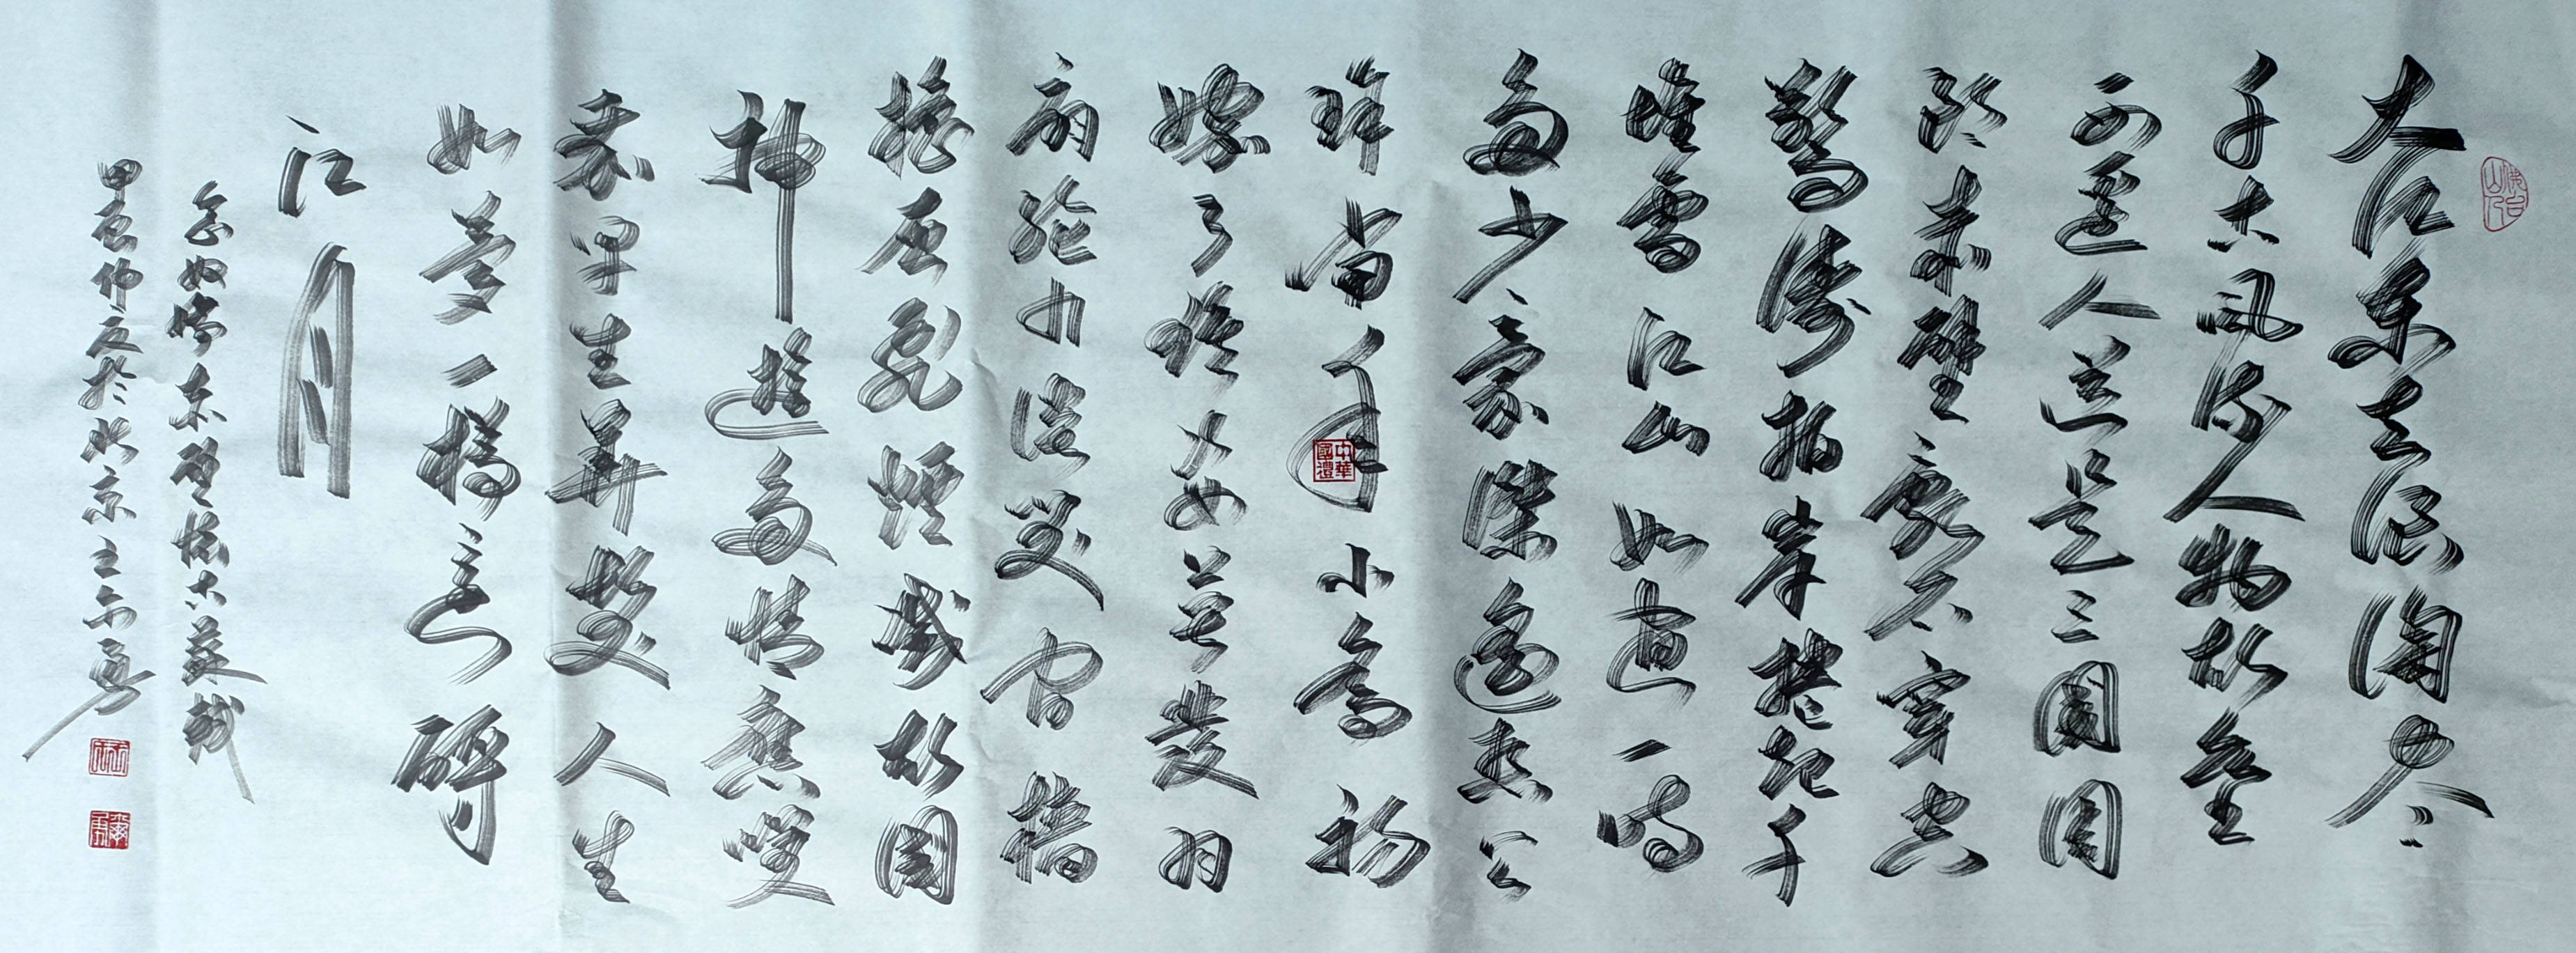 大江东去浪淘尽
千古风流人物故垒
西边人道是三国周
郎赤壁乱石穿空
惊涛拍岸捲起千
堆雪江山如画一时
多少豪杰遥想公
瑾当年小乔初
嫁了雄姿英发羽
扇纶巾谈笑间樯
橹灰飞烟灭故国
神游多情应笑
我早生华发人生
如梦一樽还酹
江月
念奴娇赤壁怀古苏轼
甲辰仲夏於北京王
中華國禮